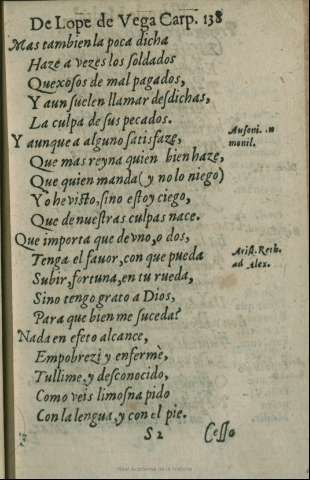 De Lope de Vega Carp. 138
Mas tambien la poca dicha
Haze a vezes los soldados
Quexosos de mal pagados,
Y aun suelen llamar desdichas,
La culpa de sus pecados.
Y aunque a alguno satisfaze,
Ausoni. in
monil.
Que mas reyna quien bien haze,
Que quien manda (y no lo niego)
Yo he visto, sino estoy ciego,
Que de nuestras culpas nace.
Que importa que de vno, o dos,
Tenga el fauor, con que pueda
Arist. Reth.
ad Alex.
Subir, fortuna, en tu rueda,
Sino tengo grato a Dios,
Para que bien me suceda?
Nada en efeto alcance,
Empobrezi y enfermè,
Tullime, y desconocido,
Como veis limosna pido
Con la lengua, y con el pie.
S 2
Cesso
Real Academia de la Historia